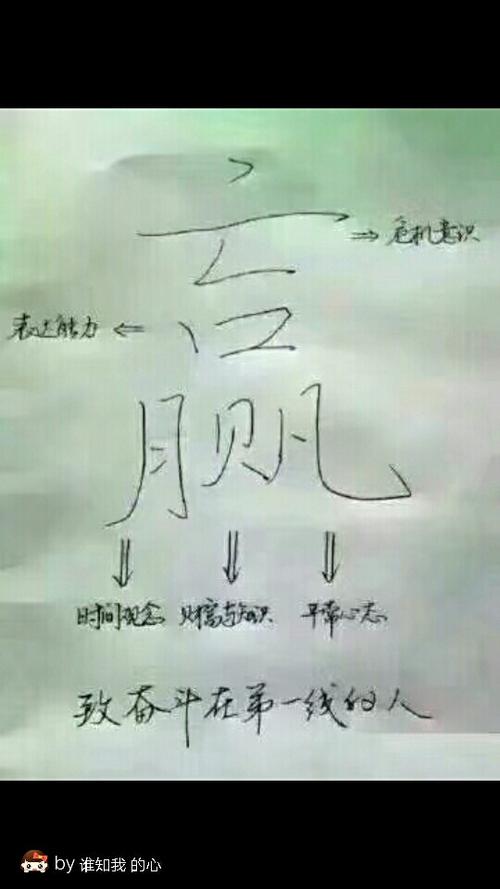 赢
⇒危机意识
表达能力⇐
时间观念 财富与知识 平常心态
致奋斗在第一线的人
by 谁知我的心